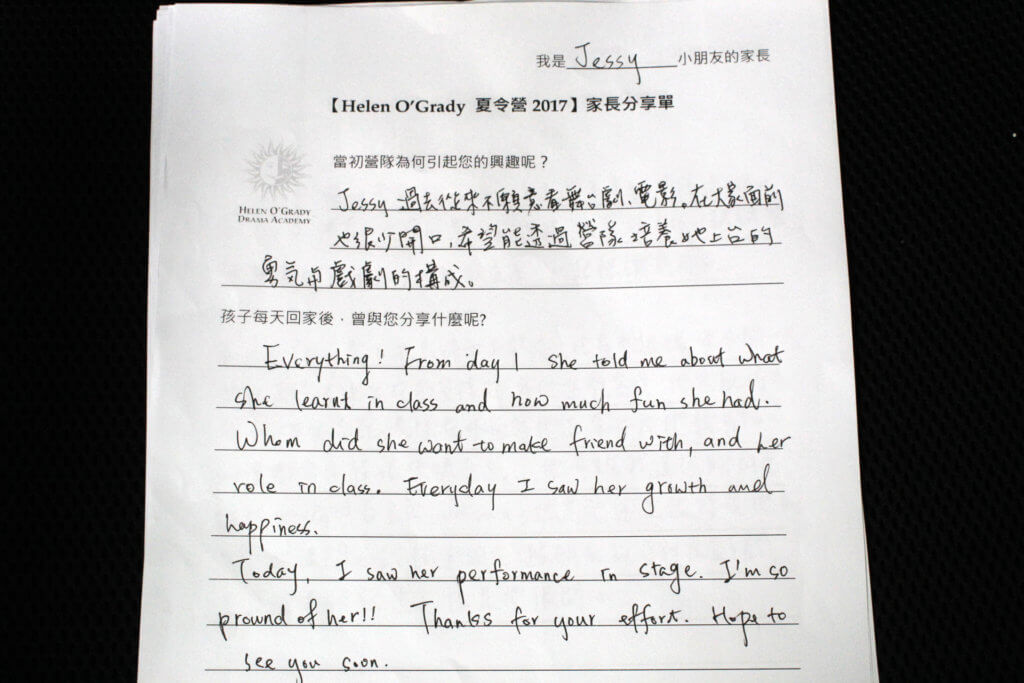 我是 Jessy 小朋友的家長
【Helen O'Grady 夏令營 2017】家長分享單
當初營隊為何引起您的興趣呢？
HELEN O'GRADY
DRAMA ACADEMY
Jessy 過去從來不願意看舞台劇、電影。在大家面前
也很少開口，希望能透過營隊培養她上台的
勇氣與戲劇的構成。
孩子每天回家後，曾與您分享什麼呢?
Everything! From day 1 she told me about what
she learnt in class and how much fun she had.
Whom did she want to make friend with, and her
role in class. Everyday I saw her growth and
happiness.
Today, I saw her performance in stage. I'm so
pround of her!! Thanks for your effort. Hope to
see you soon.